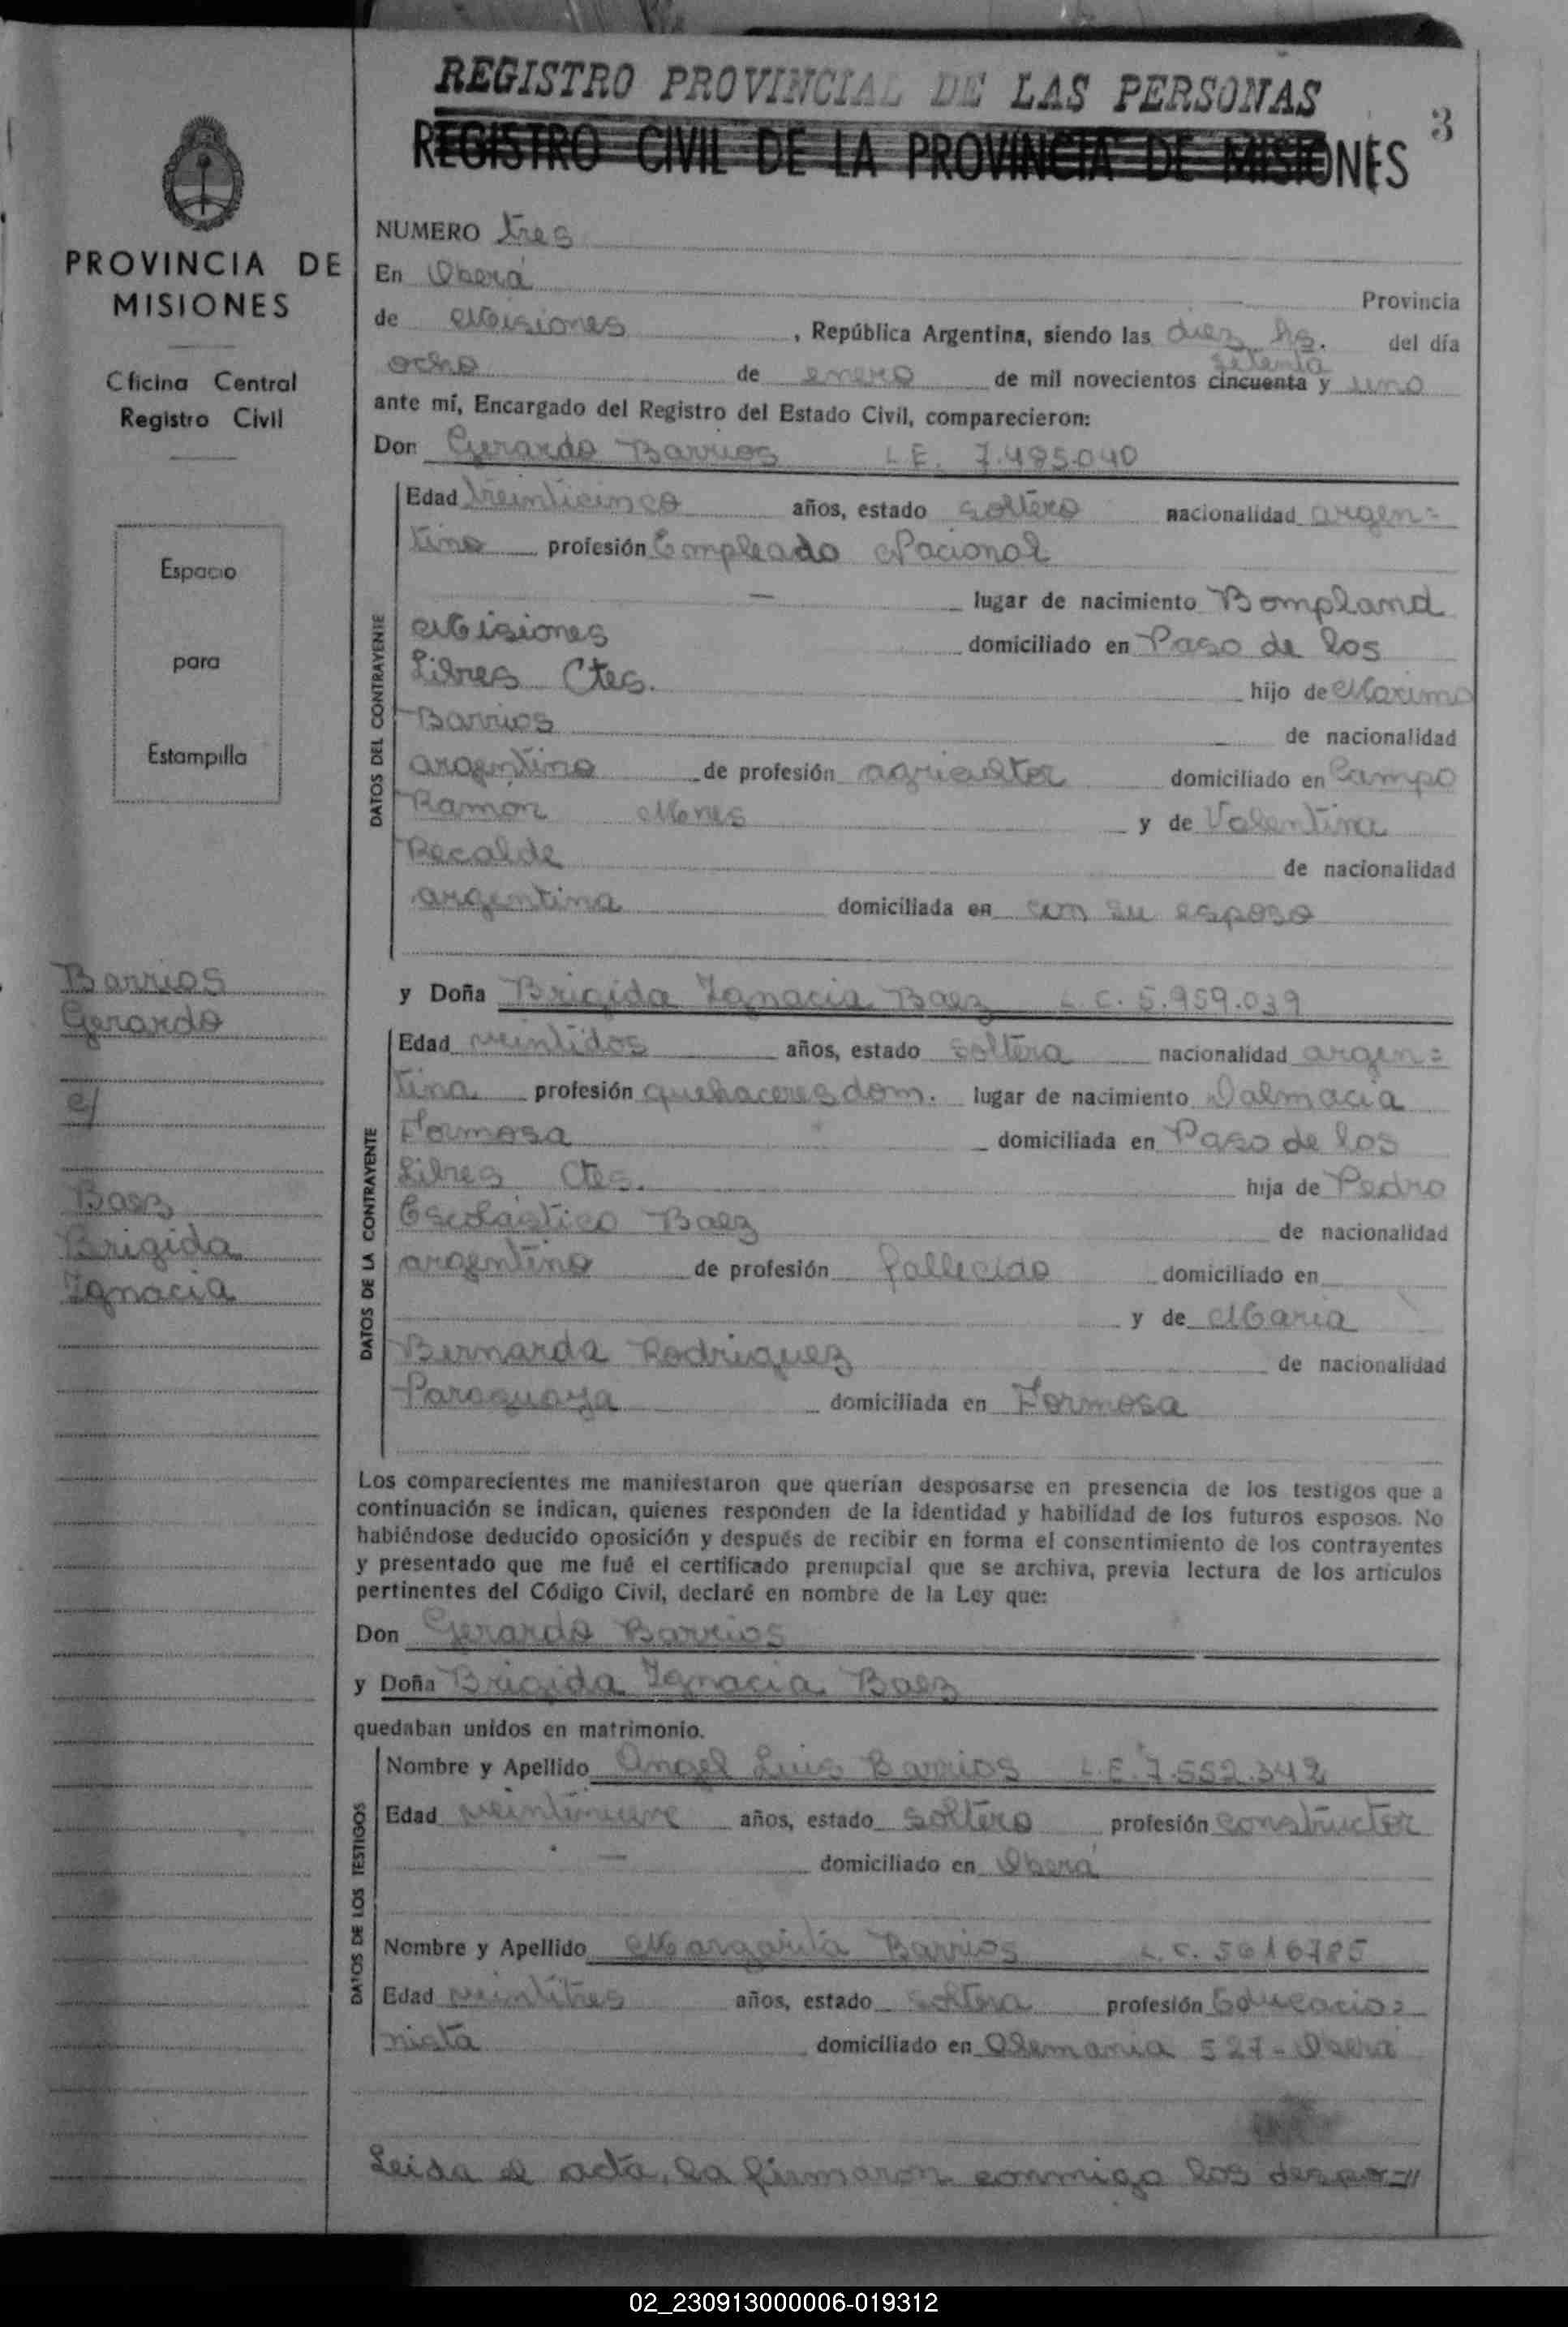 REGISTRO PROVINCIAL DE LAS PERSONAS
REGISTRO CIVIL DE LA PROVINCIA DE MISIONES
3
PROVINCIA DE
MISIONES
Oficina Central
Registro Civil
Espacio
para
Estampilla
Barrios
Gerardo
c/
Baez
Brigida
Ignacia
NUMERO tres
En Oberá Provincia
de Misiones, República Argentina, siendo las diez hs. del día
setenta
ocho de enero de mil novecientos cincuenta y uno
ante mí, Encargado del Registro del Estado Civil, comparecieron:
Don Gerardo Barrios L.E. 7.485.040
DATOS DEL CONTRAYENTE
Edad treinticinco años, estado soltero nacionalidad argen=
tino profesión Empleado Nacional
— lugar de nacimiento Bompland
Misiones domiciliado en Paso de los
Libres Ctes. hijo de Maximo
Barrios de nacionalidad
argentino de profesión agricultor domiciliado en Campo
Ramón Mones y de Valentina
Recalde de nacionalidad
argentina domiciliada en con su esposo
y Doña Brigida Ignacia Baez L.C. 5.959.039
DATOS DE LA CONTRAYENTE
Edad veintidos años, estado soltera nacionalidad argen=
tina profesión quehaceres dom. lugar de nacimiento Dalmacia
Formosa domiciliada en Paso de los
Libres Ctes. hija de Pedro
Escolástico Baez de nacionalidad
argentino de profesión fallecido domiciliado en
y de Maria
Bernarda Rodriguez de nacionalidad
Paraguaya domiciliada en Formosa
Los comparecientes me manifestaron que querían desposarse en presencia de los testigos que a
continuación se indican, quienes responden de la identidad y habilidad de los futuros esposos. No
habiéndose deducido oposición y después de recibir en forma el consentimiento de los contrayentes
y presentado que me fué el certificado prenupcial que se archiva, previa lectura de los artículos
pertinentes del Código Civil, declaré en nombre de la Ley que:
Don Gerardo Barrios
y Doña Brigida Ignacia Baez
quedaban unidos en matrimonio.
DATOS DE LOS TESTIGOS
Nombre y Apellido Angel Luis Barrios L.E. 7.552.342
Edad veintinueve años, estado soltero profesión constructor
— domiciliado en Oberá
Nombre y Apellido Margarita Barrios L.C. 5616785
Edad veintitres años, estado soltera profesión Educacio=
nista domiciliado en Alemania 527 - Oberá
Leida el acta, la firmaron conmigo los despo=//
02_230913000006-019312